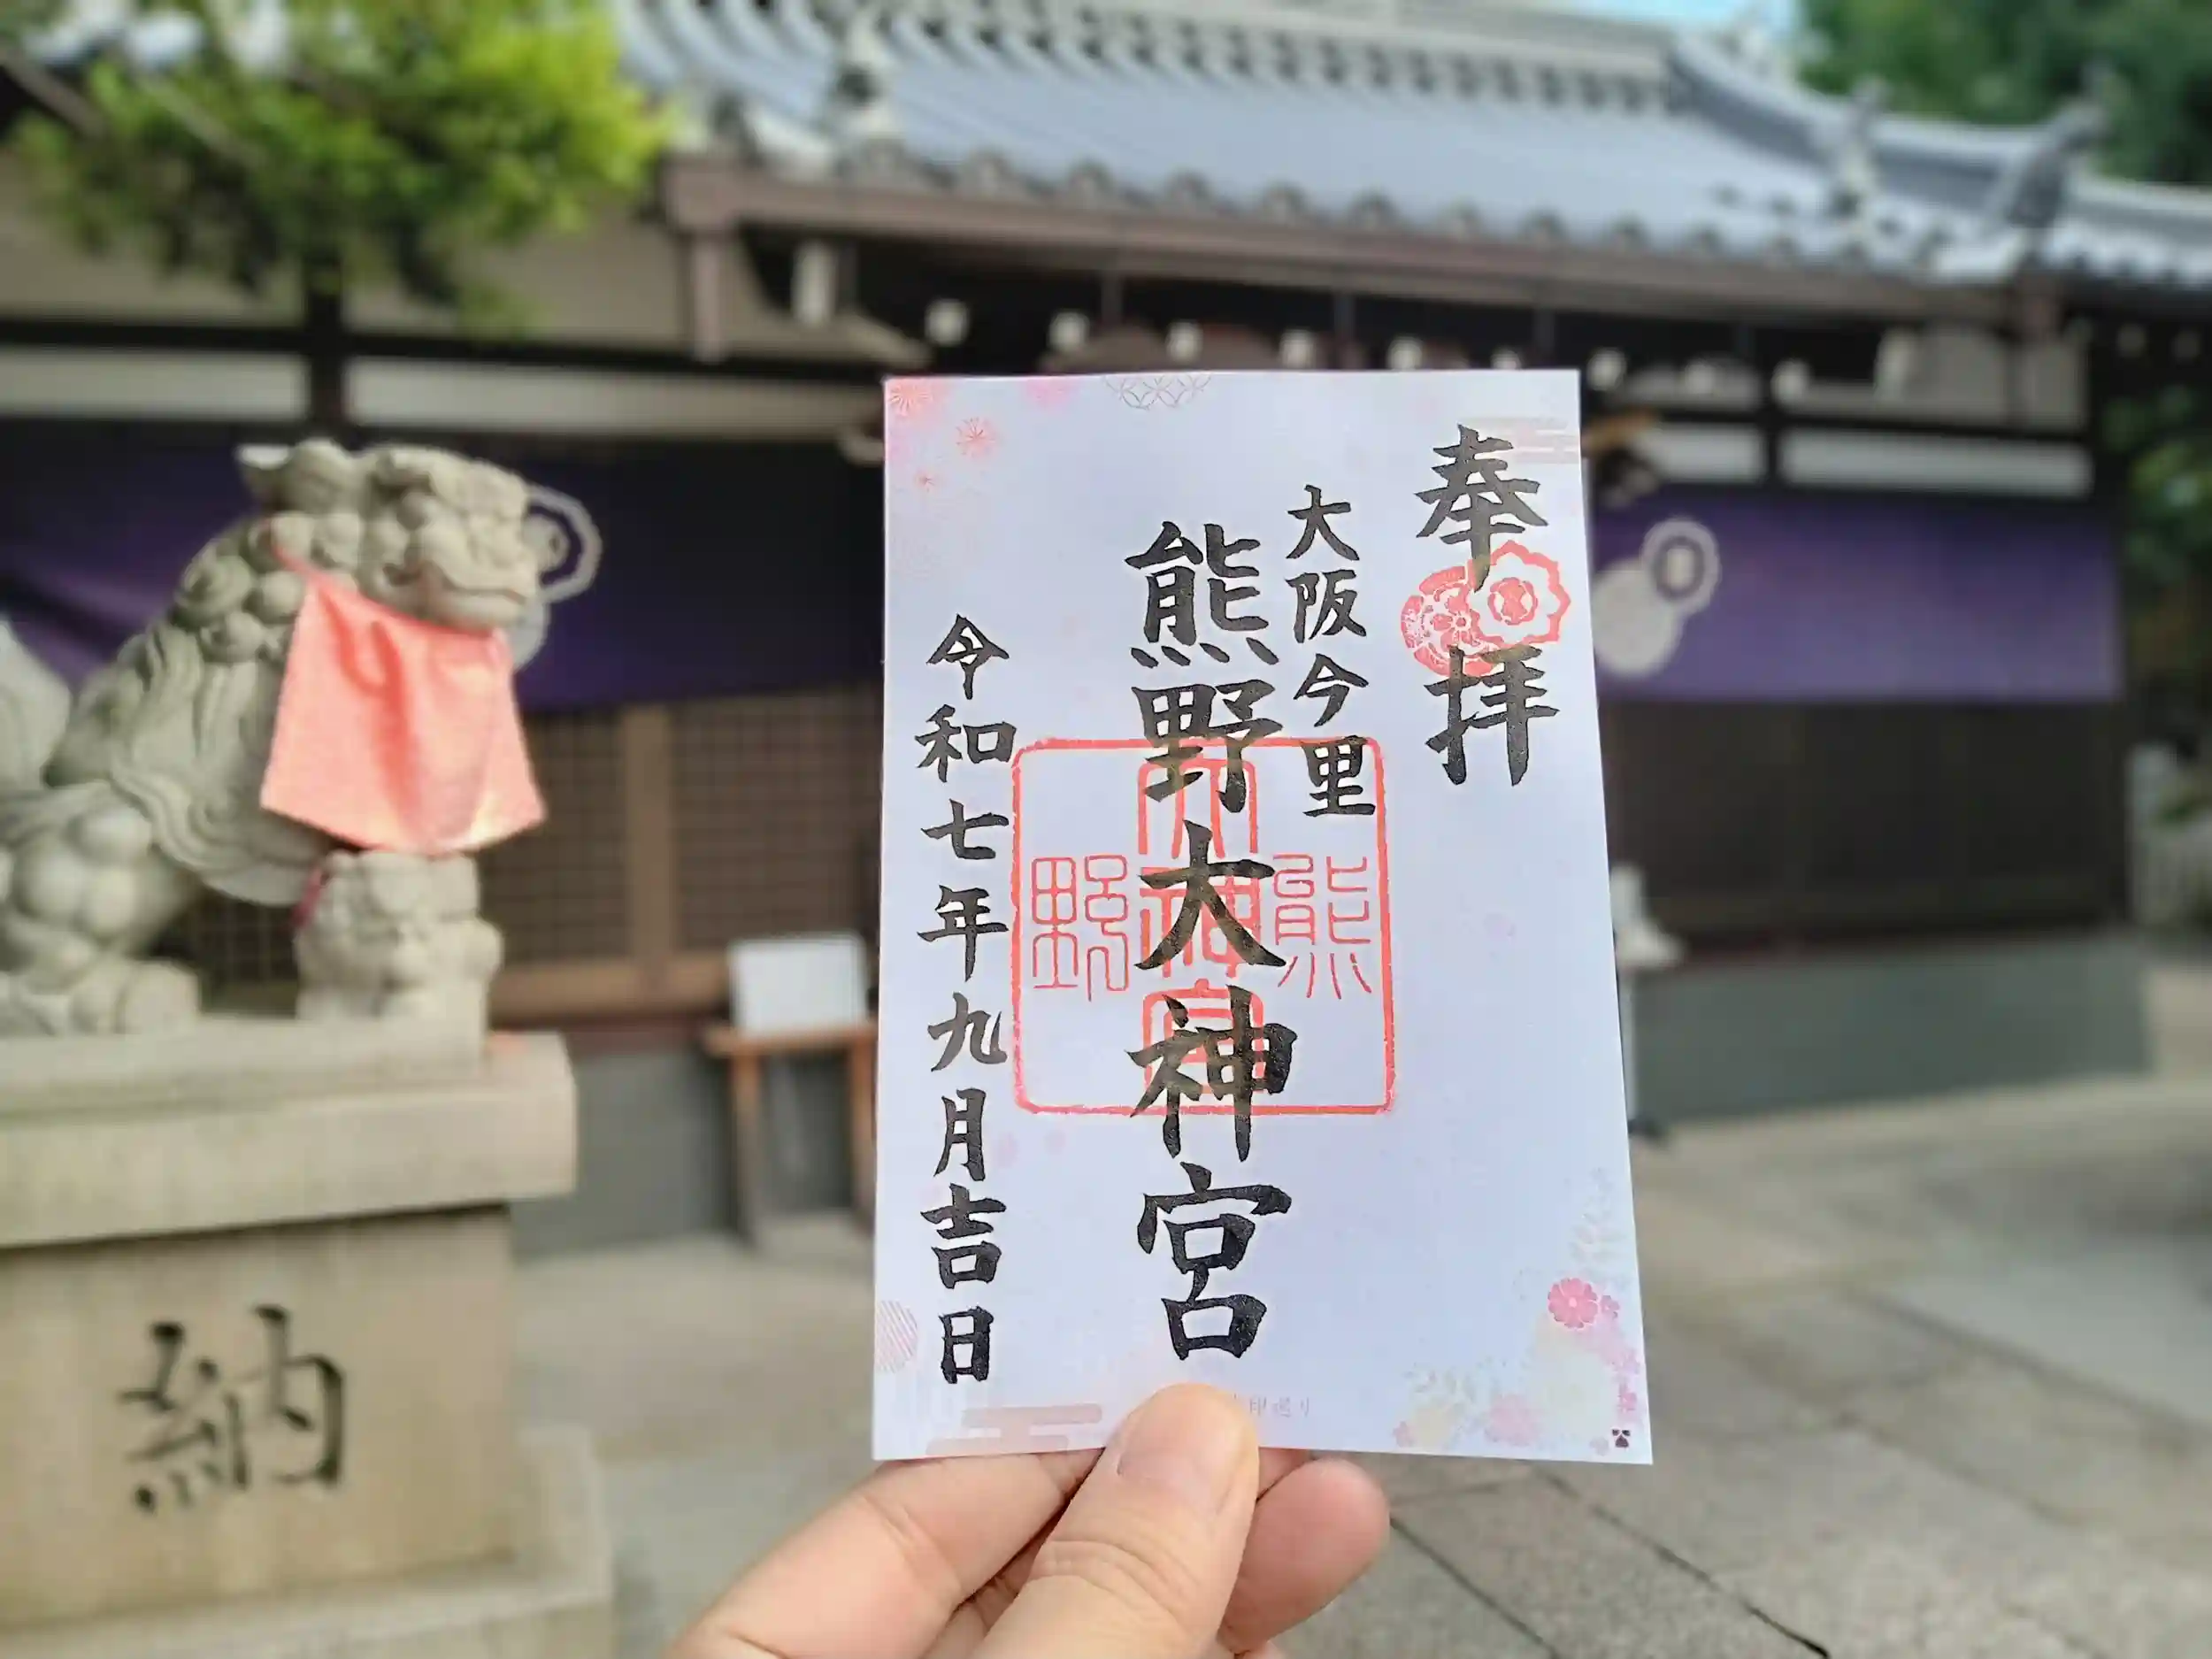 奉拝
大阪今里
熊野大神宮
令和七年九月吉日
熊野大神宮
印巡り
納